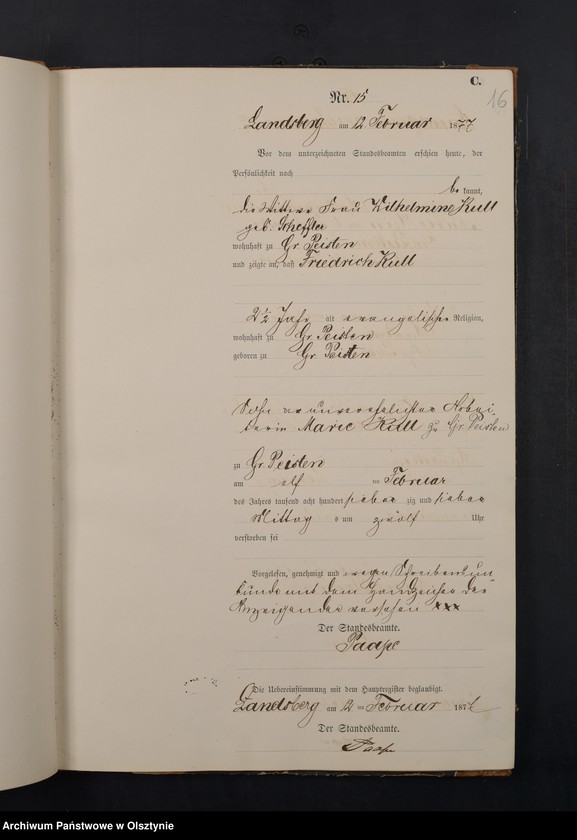 C.
16
Nr. 15
Landsberg am 12 Februar 1877
Vor dem unterzeichneten Standesbeamten erschien heute, der
Persönlichkeit nach
be kannt,
die Wittwe Frau Wilhelmine Kull
geb. Scheffler
wohnhaft zu Gr Peisten
und zeigte an, daß Friedrich Kull
2½ Jahr alt evangelischer Religion,
wohnhaft zu Gr. Peisten
geboren zu Gr. Peisten
Sohn der unverehelichten Arbei-
terin Marie Kull zu Gr. Peisten
zu Gr Peisten
am elf ten Februar
des Jahres tausend acht hundert sieben zig und sieben
Mittag s um zwölf Uhr
verstorben sei
Vorgelesen, genehmigt und wegen Schreibensun-
kunde mit dem Handzeichen der
Anzeigenden versehen xxx
Der Standesbeamte.
Paape
Die Uebereinstimmung mit dem Hauptregister beglaubigt.
Landsberg am 12 ten Februar 187
Der Standesbeamte.
Paape
Archiwum Państwowe w Olsztynie